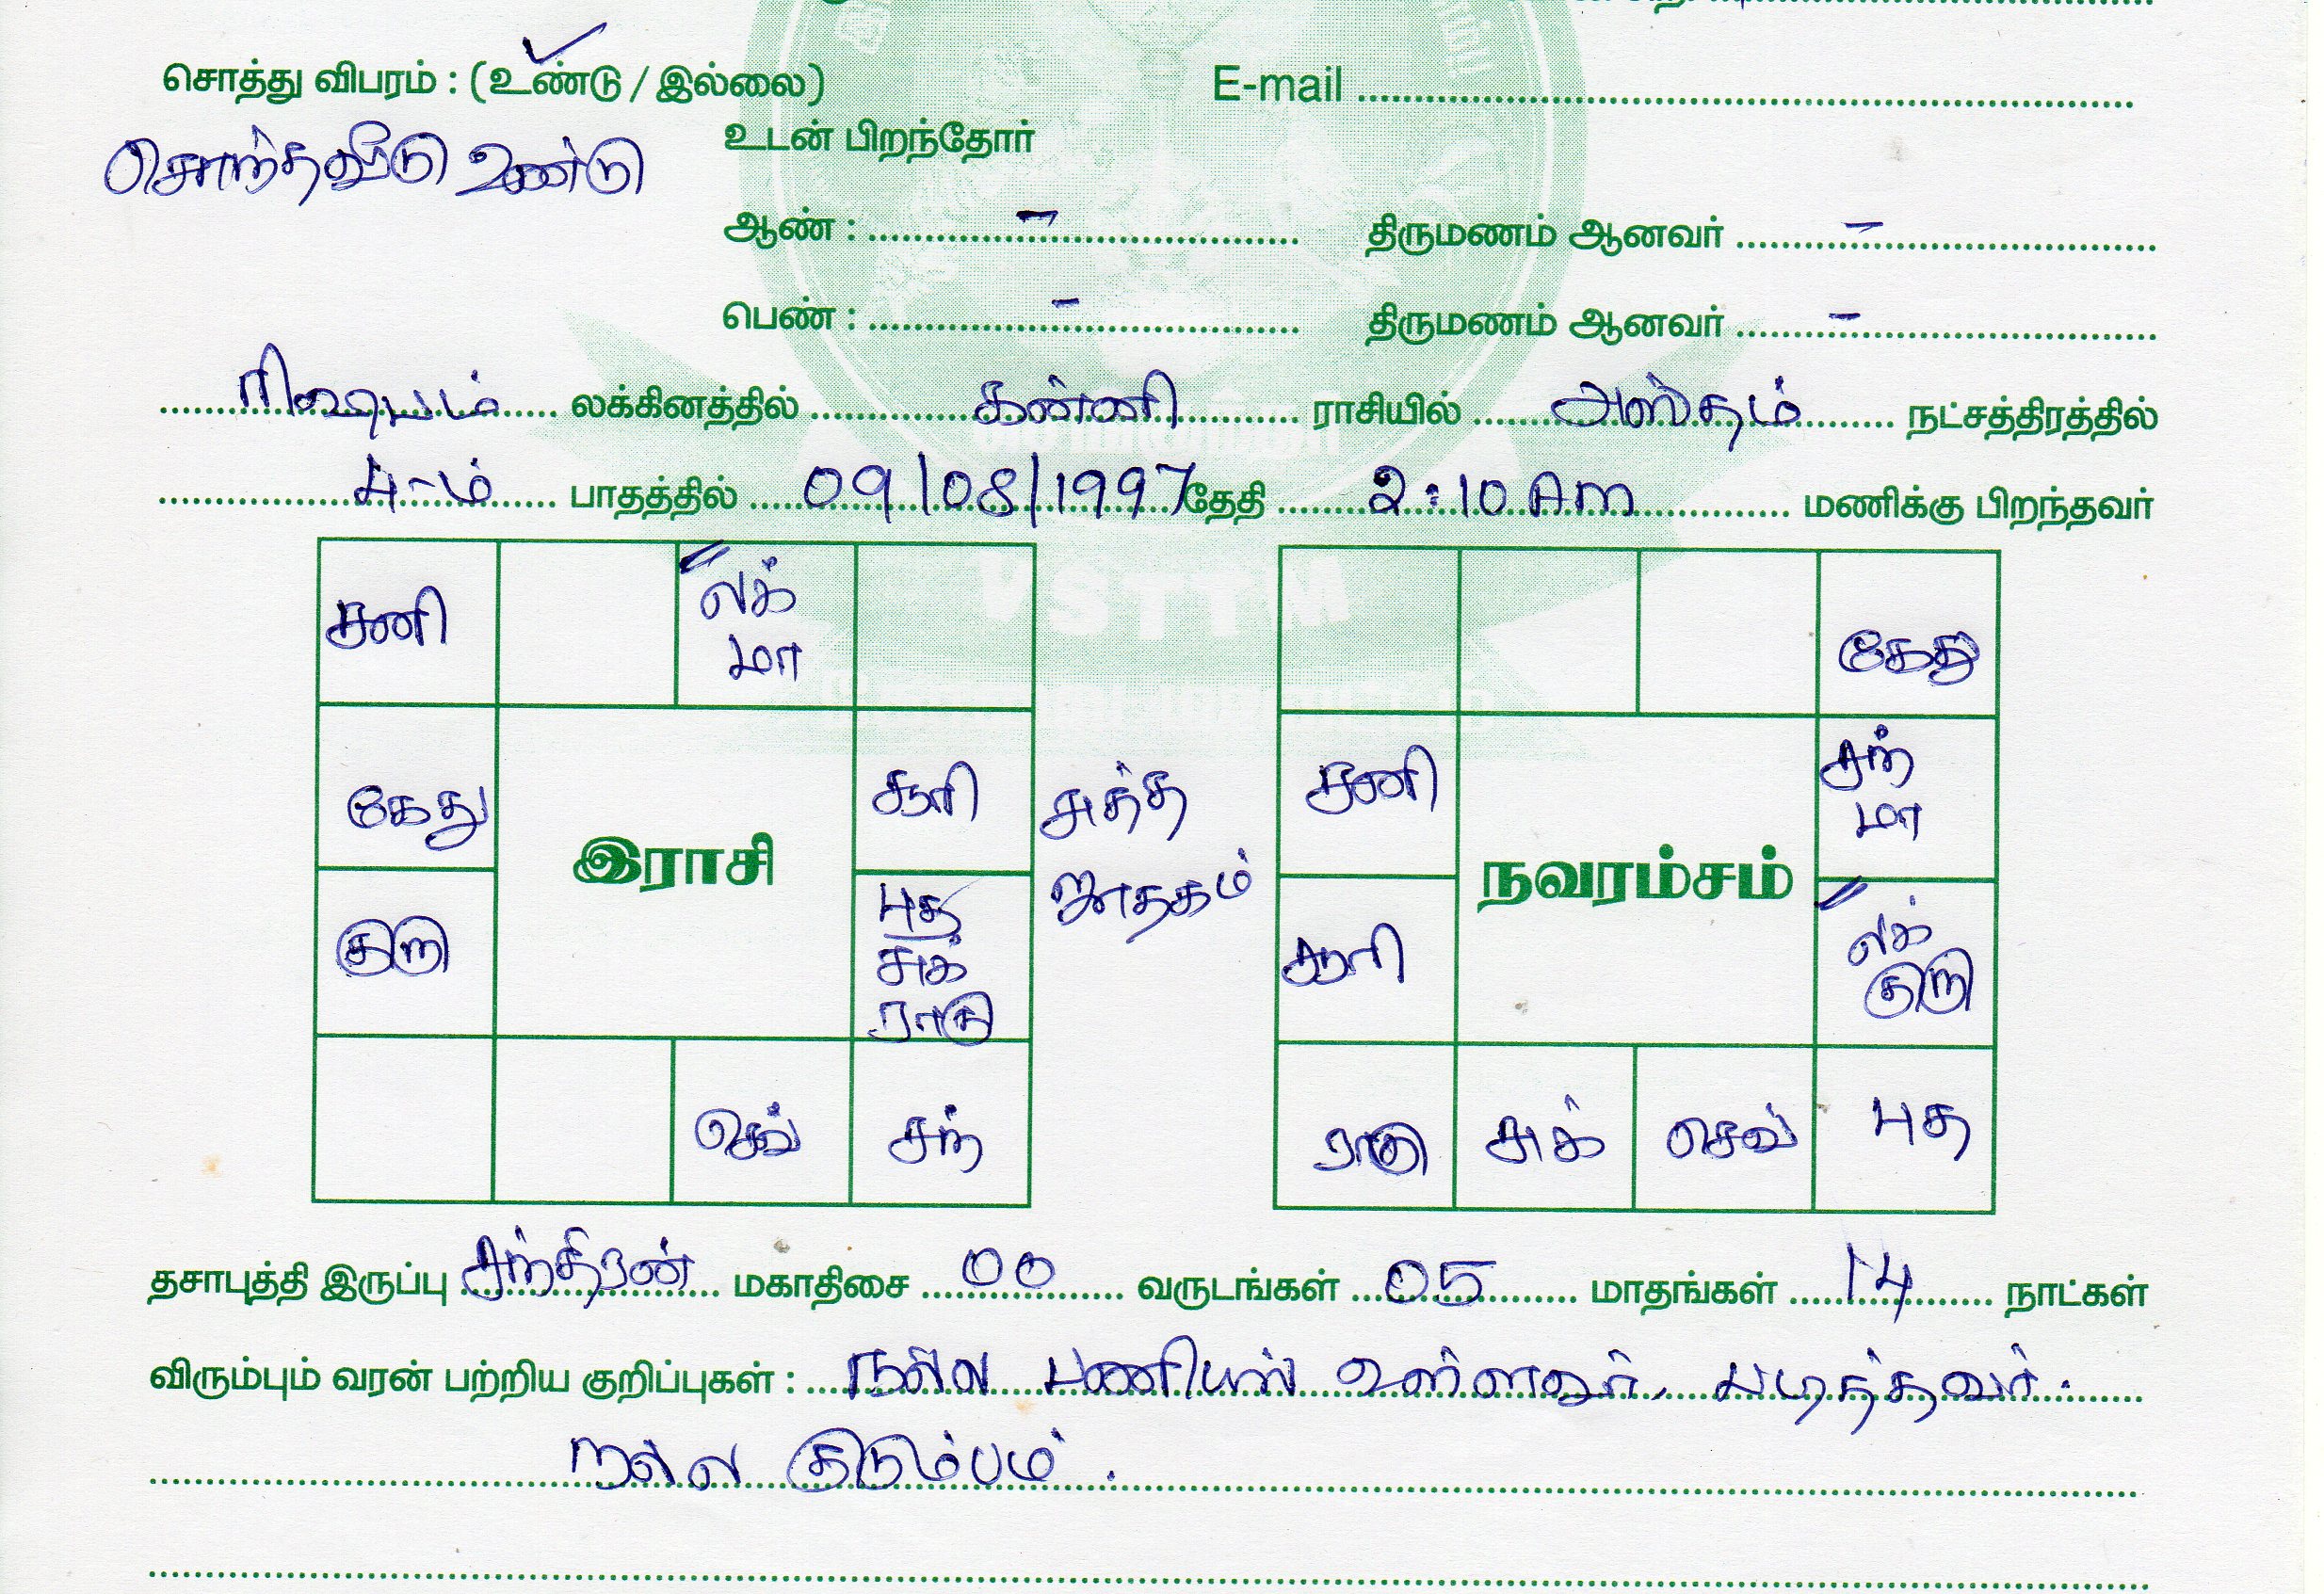 சொத்து விபரம் : (உண்டு / இல்லை) E-mail
சொந்தவீடு உண்டு
உடன் பிறந்தோர்
ஆண் : - திருமணம் ஆனவர் -
பெண் : - திருமணம் ஆனவர் -
ரிஷபம் லக்கினத்தில் கன்னி ராசியில் அஸ்தம் நட்சத்திரத்தில்
4-ம் பாதத்தில் 09/08/1997 தேதி 2:10 Am மணிக்கு பிறந்தவர்
சனி லக் மா
கேது சூரி
இராசி
குரு புத சுக் ராகு
செவ் சந்
சுத்த
ஜாதகம்
கேது
சனி சந் மா
நவரம்சம்
சூரி லக் குரு
ராகு சுக் செவ் புத
VSTTM
தசாபுத்தி இருப்பு சந்திரன் மகாதிசை 00 வருடங்கள் 05 மாதங்கள் 14 நாட்கள்
விரும்பும் வரன் பற்றிய குறிப்புகள் : நல்ல பணியில் உள்ளவர், படித்தவர்.
நல்ல குடும்பம்.